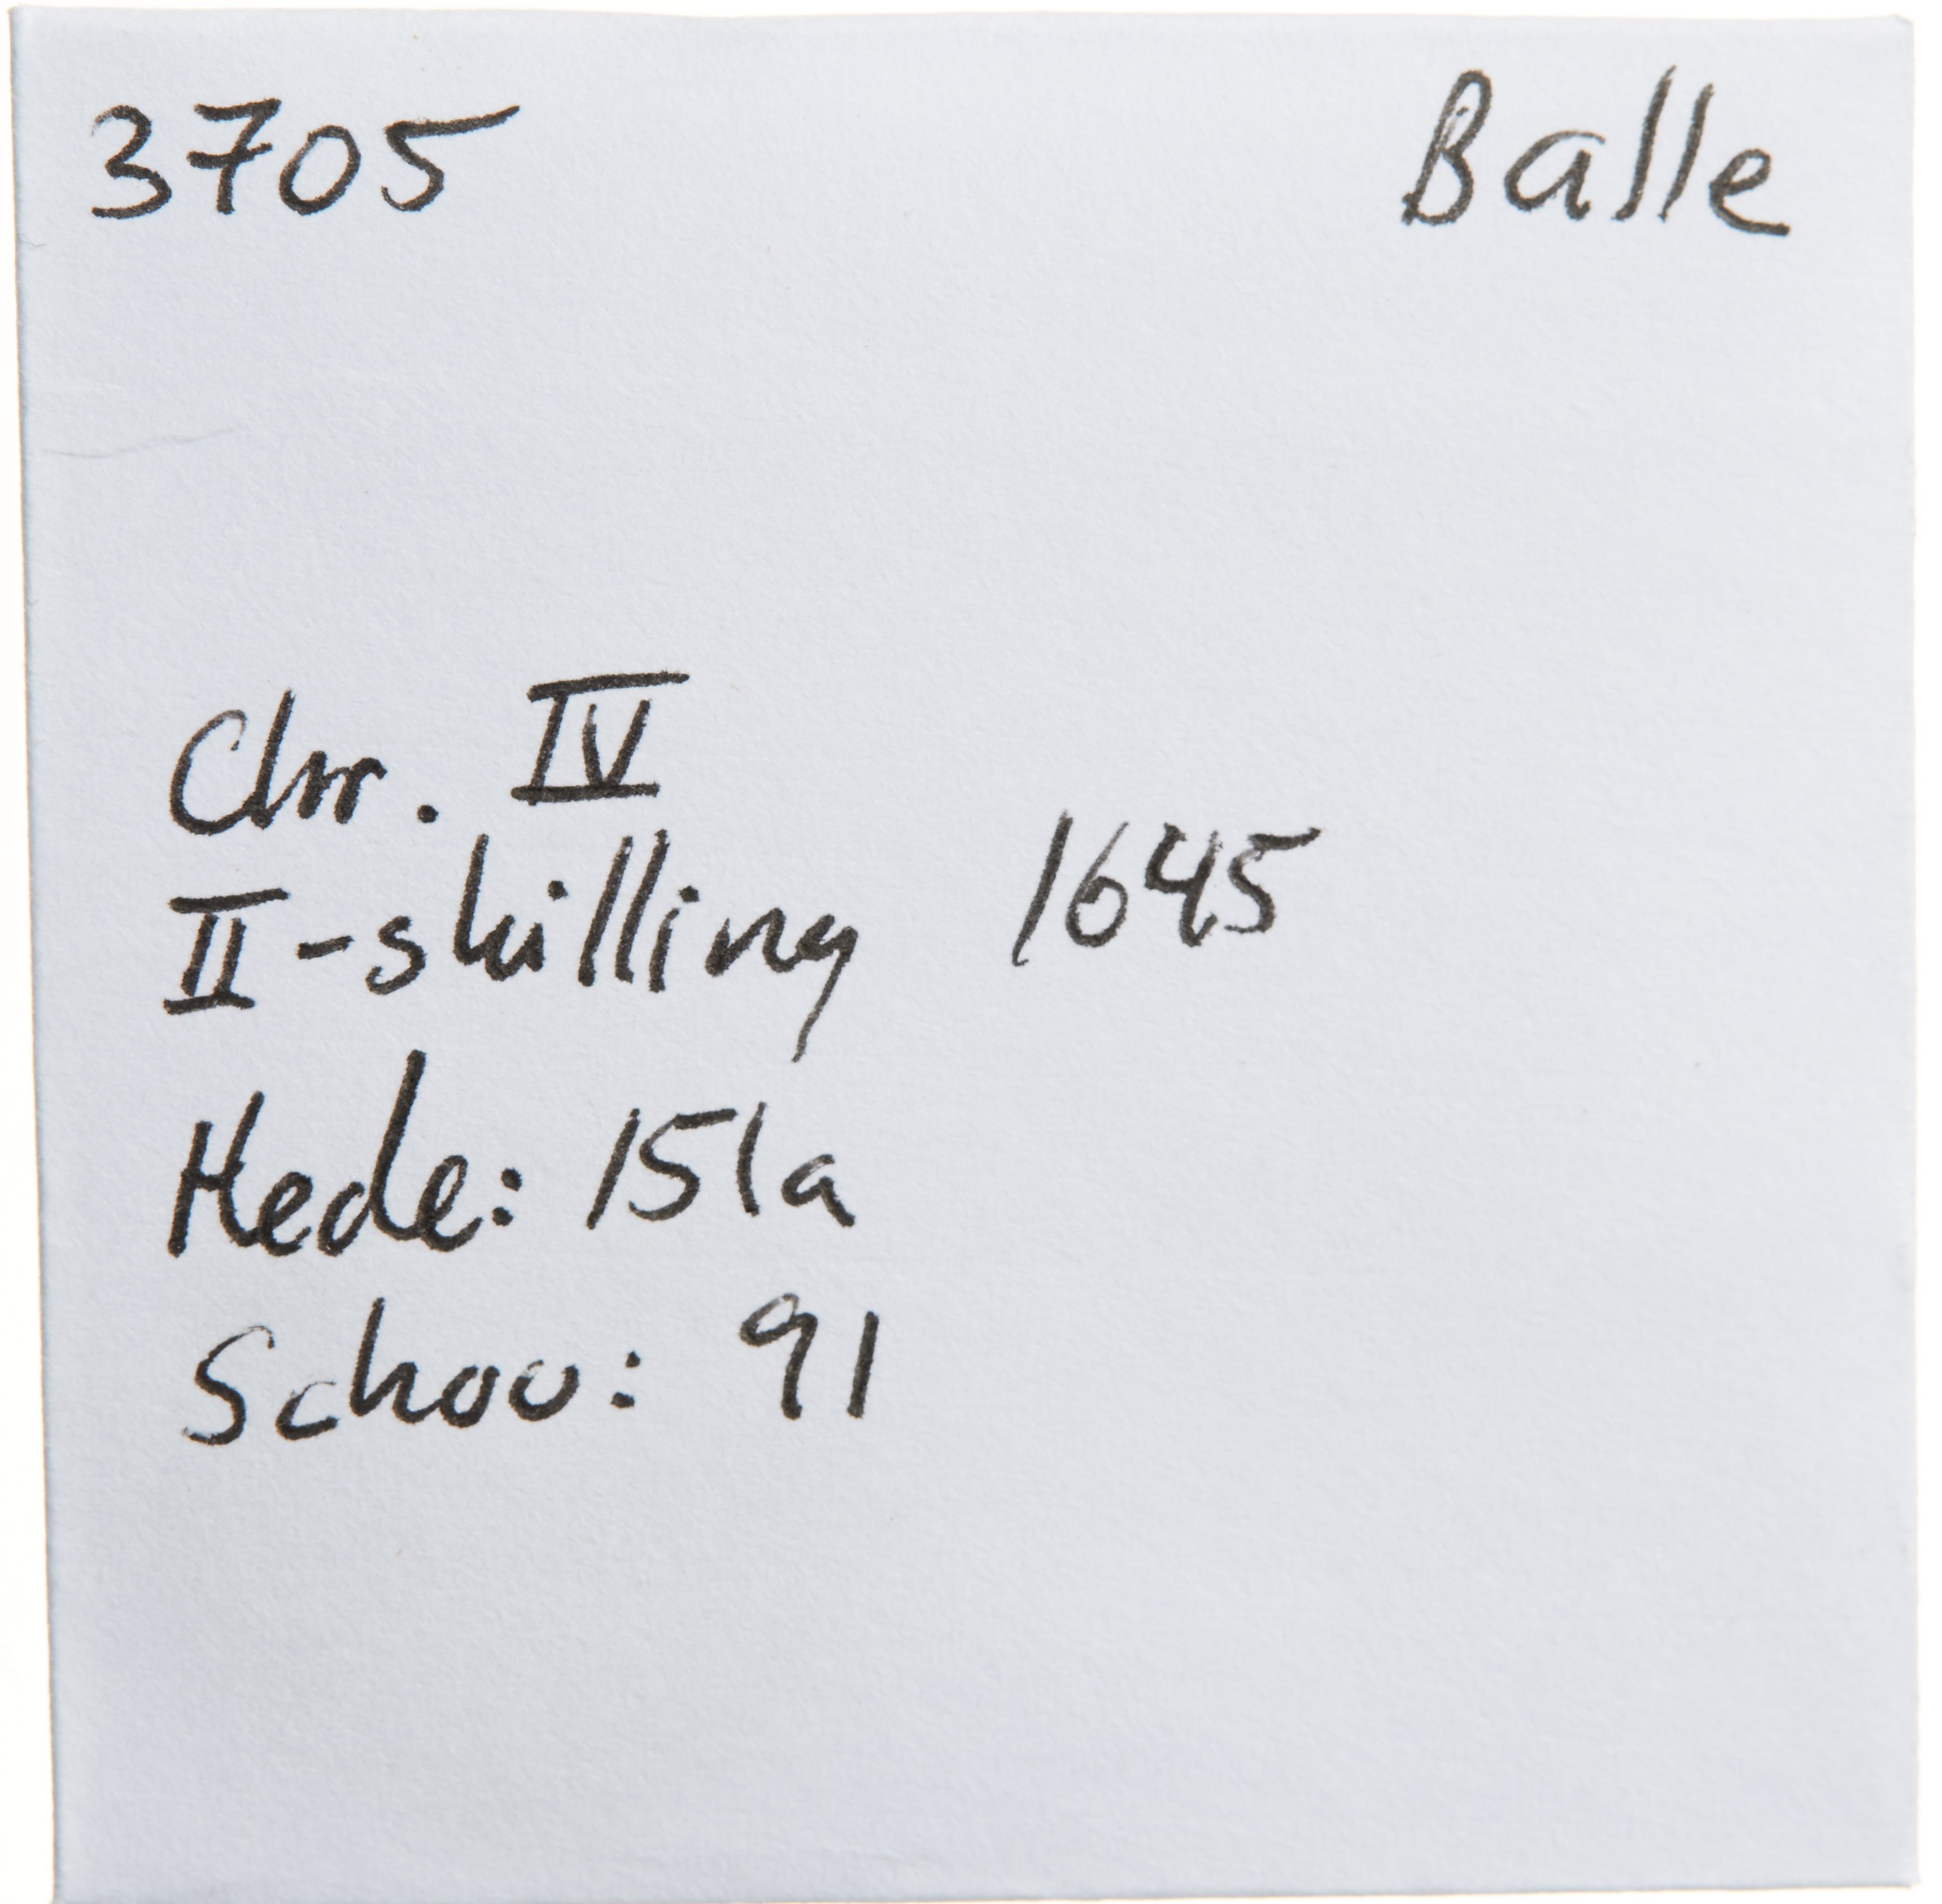 3705 Balle
Chr. IV
II-skilling 1645
Hede: 151a
Schou: 91